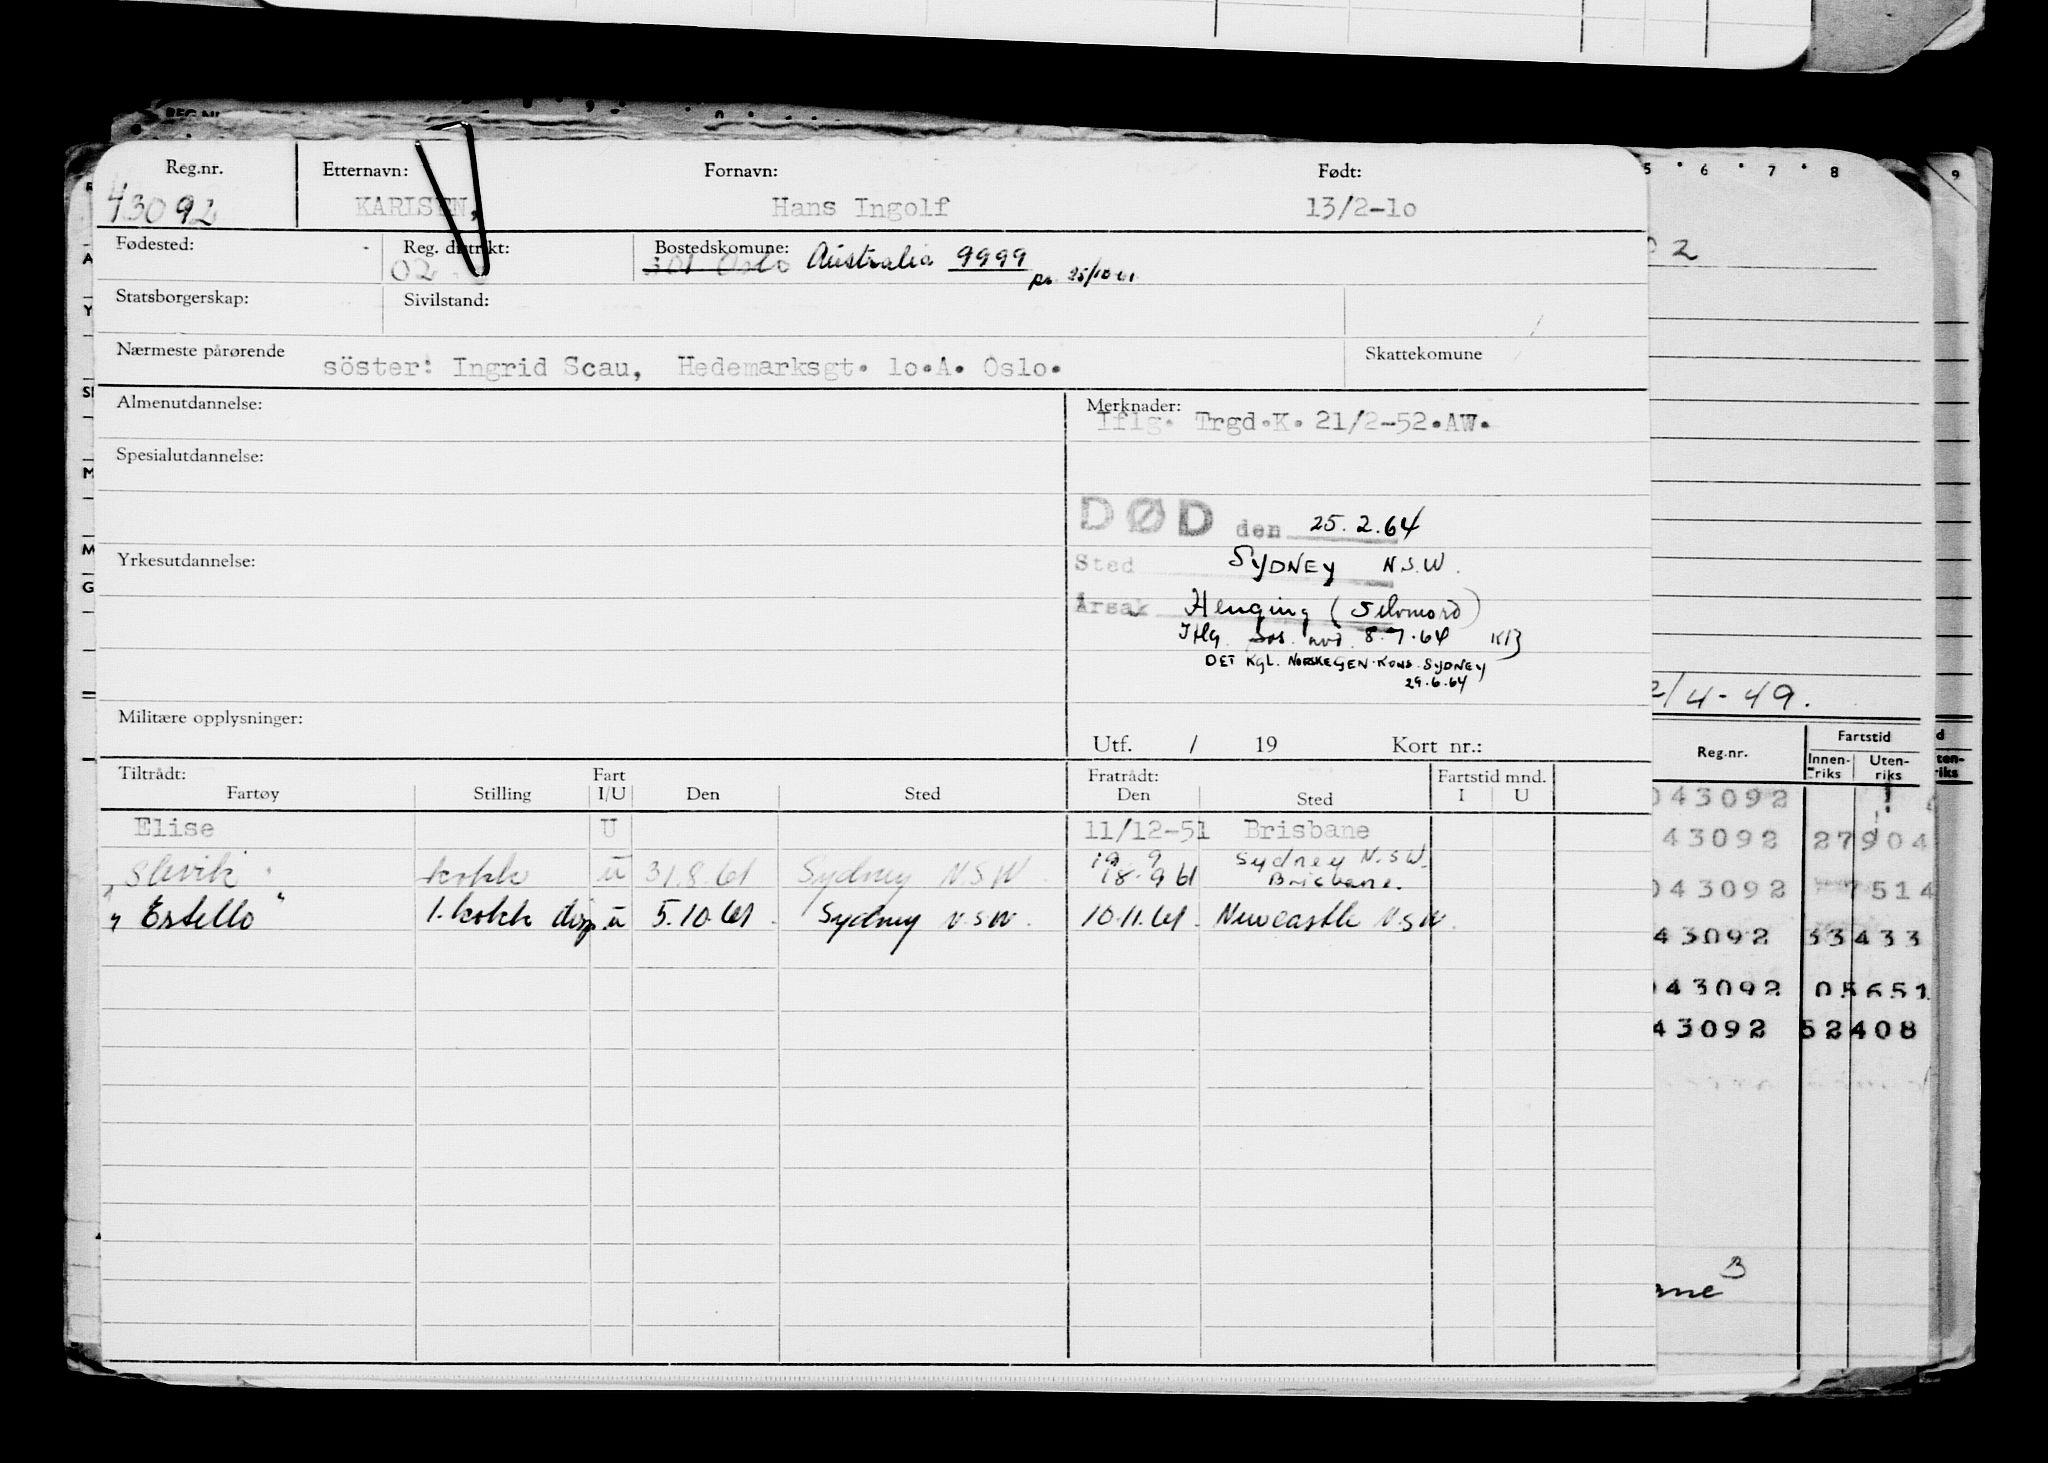 Reg.nr. Etternavn: Fornavn: Født:
43092 KARLSEN, Hans Ingolf 13/2-10
Fødested: Reg. distrikt: Bostedskomune:
02 301 Oslo Australia 9999
25/10 61
Statsborgerskap: Sivilstand:
Nærmeste pårørende söster: Ingrid Scau, Hedemarksgt. 10.A. Oslo. Skattekomune
Almenutdannelse: Merknader:
Iflg. Trgd.K. 21/2-52.AW.
Spesialutdannelse:
DØD den 25.2.64
Yrkesutdannelse: Sted SYDNEY N.S.W.
Årsak Henging (Selvmord)
Iflg. 8.7.64
DET KGL. NORSKE GEN. KONS. SYDNEY
29.6.64
Militære opplysninger:
Utf. / 19 Kort nr.:
Tiltrådt: Fart Fratrådt: Fartstid mnd.
Fartøy Stilling I/U Den Sted Den Sted I U
Elise U 11/12-51 Brisbane
19 9 Sydney N.S.W.
"Slevik" kokk u 31.8.61 Sydney N.S.W. 18.9 61 Brisbane.
"Estello" 1. kokk u 5.10.61. Sydney N.S.W. 10.11.61. Newcastle N.S.W.
5 6 7 8 9
02
2/4-49.
Reg.nr. Fartstid
Innen-riks Uten-riks
043092
43092 27904
043092 7514
43092 33433
043092 05651
43092 52408